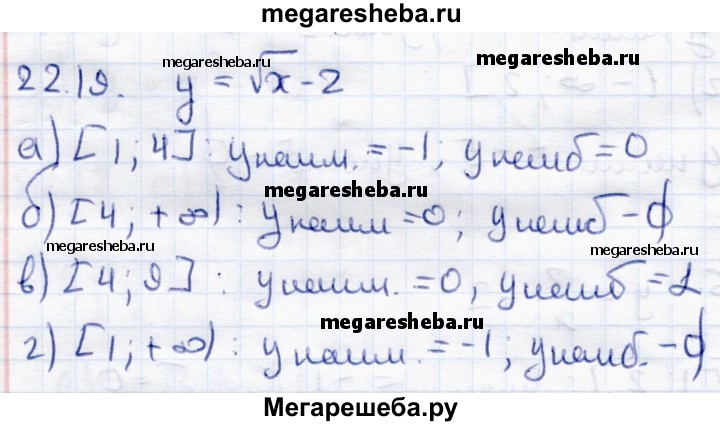 megaresheba.ru
22.19. y = √x - 2
megaresheba.ru
megaresheba.ru
а) [1; 4]: y наим. = -1; y наиб = 0
megaresheba.ru
б) [4; +∞): y наим = 0; y наиб - ∅
megaresheba.ru
megaresheba.ru
в) [4; 9]: y наим. = 0; y наиб = 1
megaresheba.ru
г) [1; +∞): y наим. = -1; y наиб. - ∅
Мегарешеба.ру